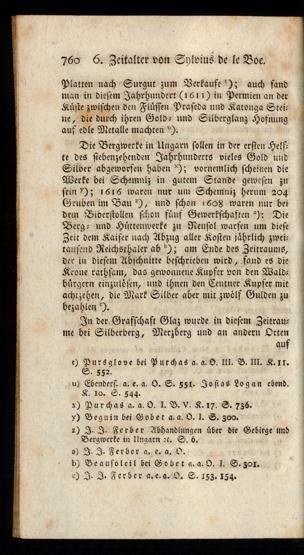 760 6. Zeitalter von Sylvius de le Boe.
Platten nach Surgut zum Verkaufe ᵗ); auch fand
man in diesem Jahrhundert (1611) in Permien an der
Küste zwischen den Flüssen Praseda und Katonga Stei-
ne, die durch ihren Gold- und Silberglanz Hofnung
auf edle Metalle machten ᵘ).
Die Bergwerke in Ungarn sollen in der ersten Helf-
te des siebenzehenden Jahrhunderts vieles Gold und
Silber abgeworfen haben ˣ); vornemlich scheinen die
Werke bei Schemniz in gutem Stande gewesen zu
sein ʸ); 1616 waren nur um Schemniz herum 204
Gruben im Bau ᶻ), und schon 1608 waren nur bei
dem Biberstollen schon fünf Gewerkschaften ᵃ): Die
Berg- und Hüttenwerke zu Neusol warfen um diese
Zeit dem Kaiser nach Abzug aller Kosten jährlich zwei-
tausend Reichsthaler ab ᵇ); am Ende des Zeitraums,
der in diesem Abschnitte beschrieben wird, fand es die
Krone rathsam, das gewonnene Kupfer von den Wald-
bürgern einzulösen, und ihnen den Centner Kupfer mit
achtzehen, die Mark Silber aber mit zwölf Gulden zu
bezahlen ᶜ).
In der Grafschaft Glaz wurde in diesem Zeitrau-
me bei Silberberg, Merzberg und an andern Orten
auf
t) Pursglove bei Purchas a. a. O. III. B. III. K. 11.
S. 552.
u) Ebenders. a. e. a. O. S. 551. Josias Logan ebend.
K. 10. S. 544.
x) Purchas a. a. O. I. B. V. K. 17. S. 736.
y) Beguin bei Gobet a. a. O. I. S. 300.
z) J. J. Ferber Abhandlungen über die Gebirge und
Bergwerke in Ungarn ꝛc. S. 6.
a) J. J. Ferber a. e. a. O.
b) Beausoleil bei Gobet a. a. O. I. S. 301.
c) J. J. Ferber a. e. a. O. S. 153. 154.